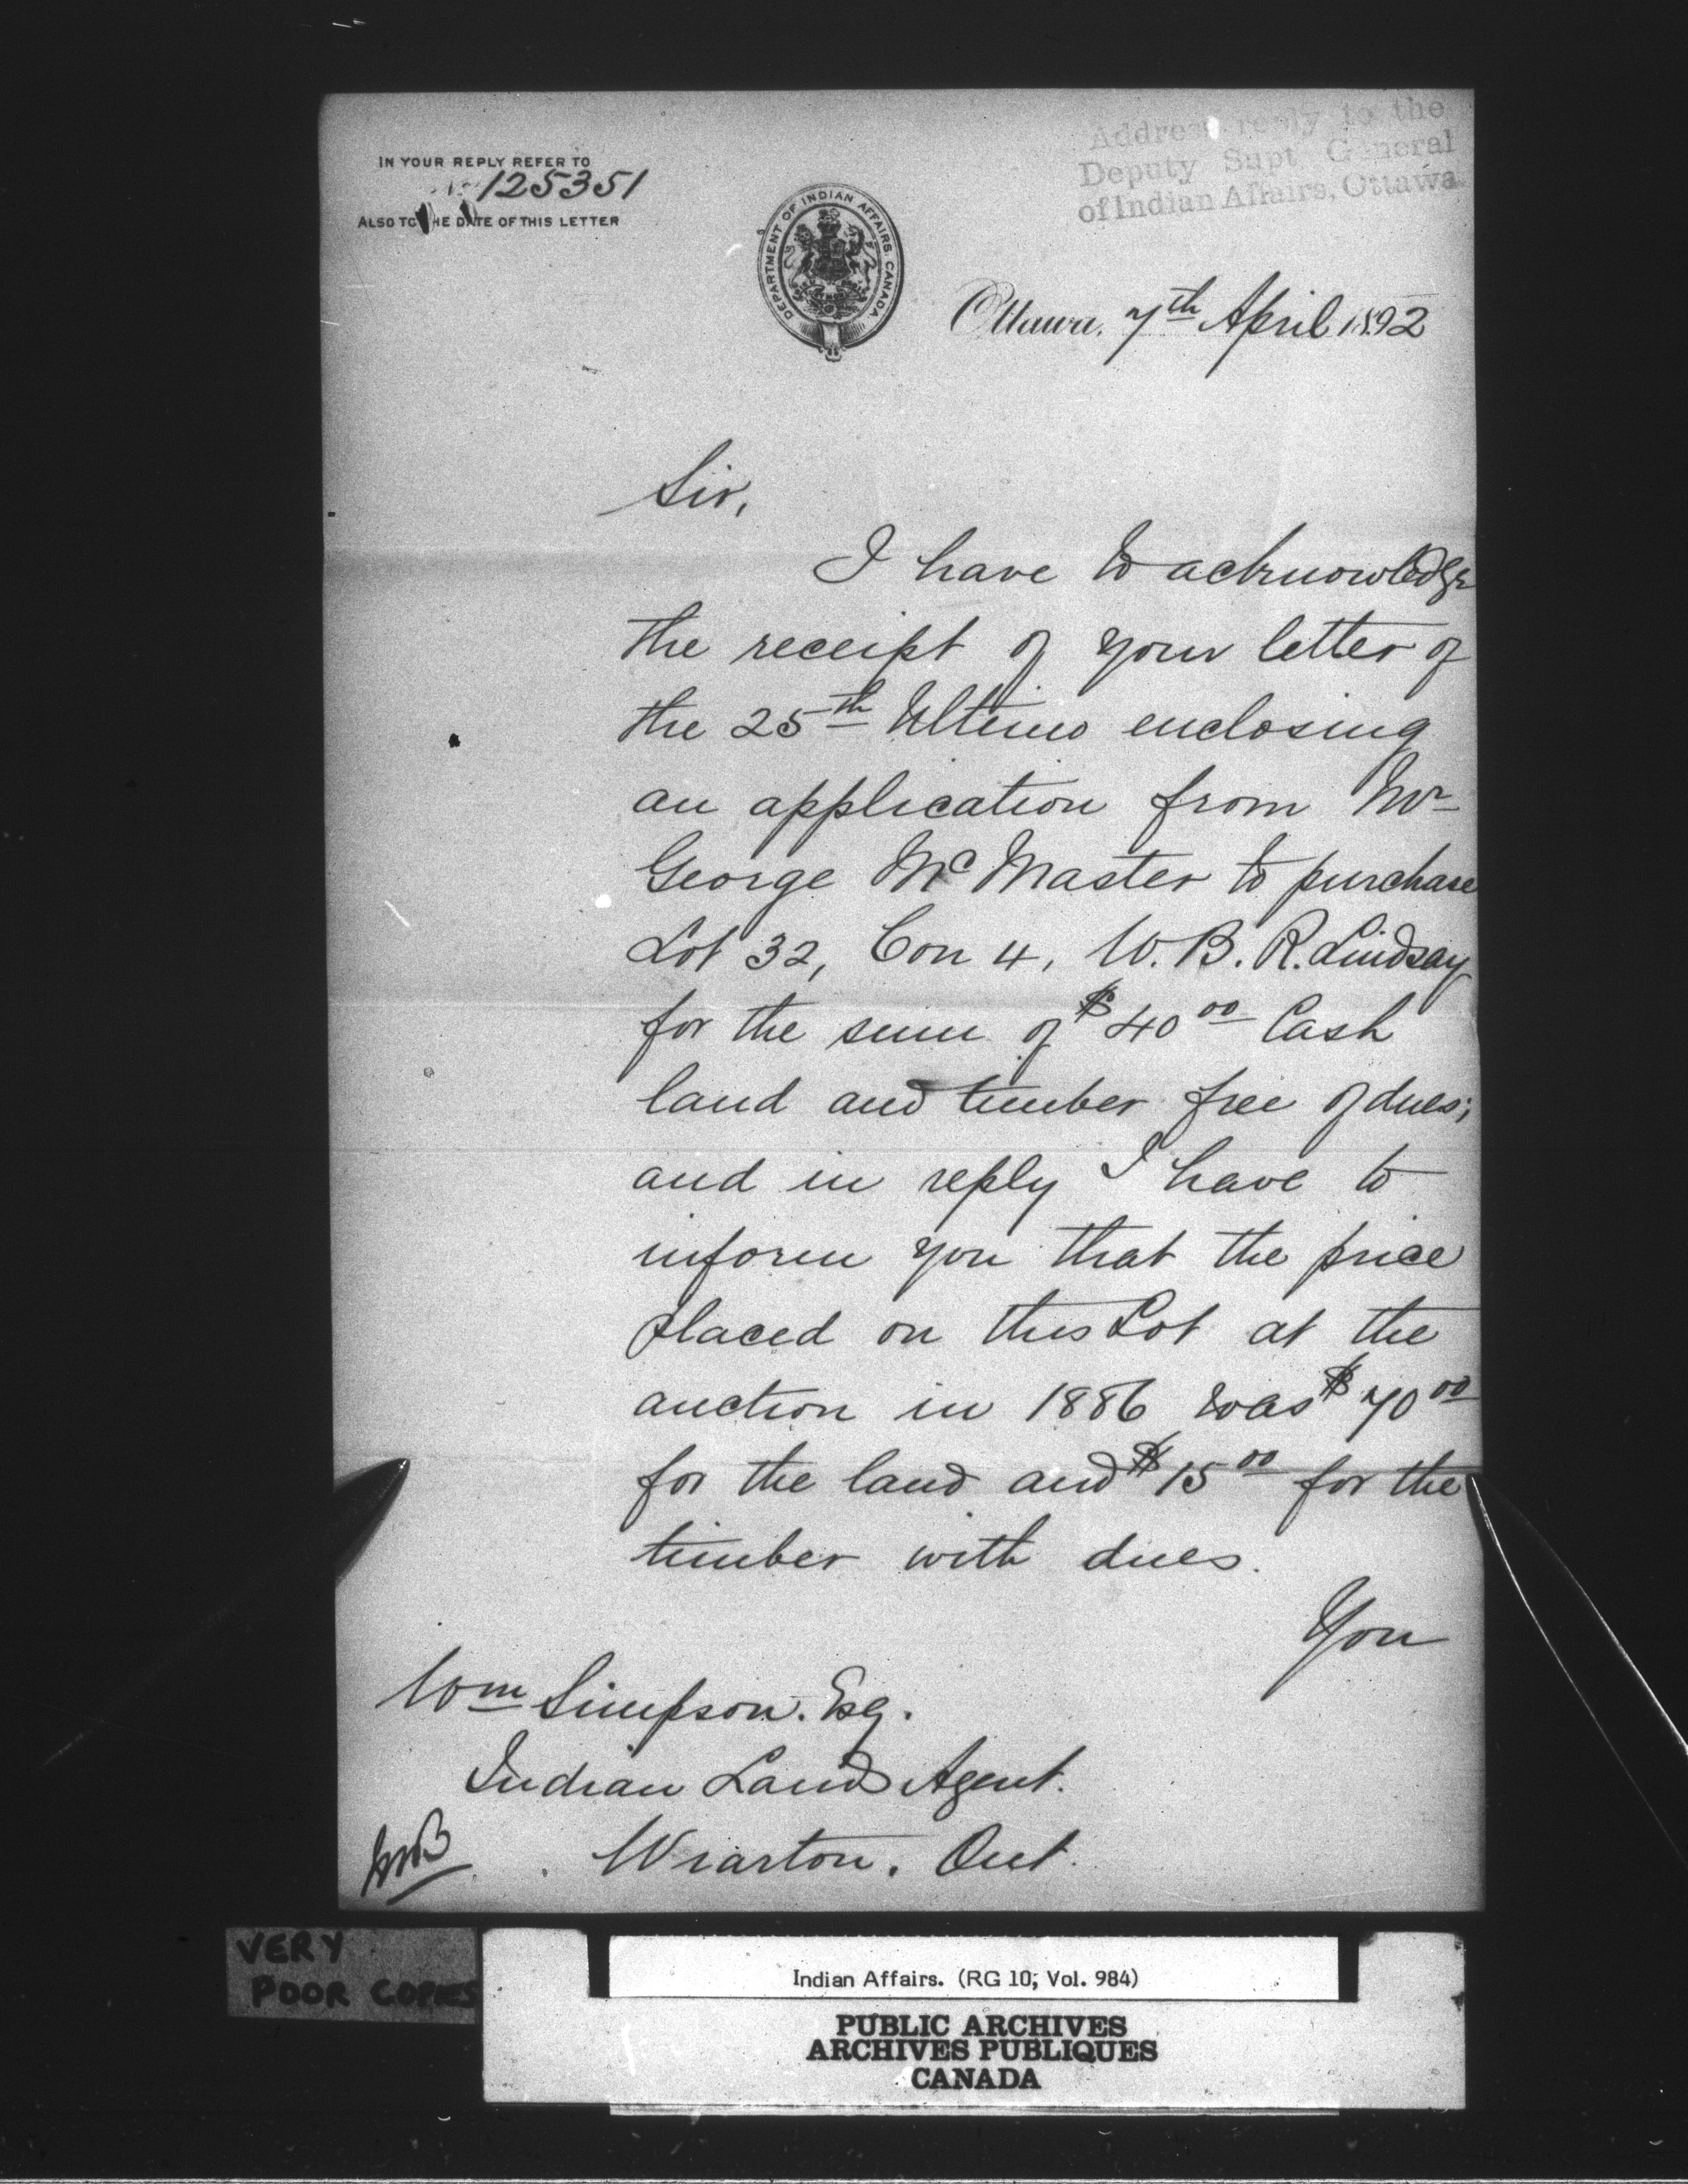 IN YOUR REPLY REFER TO
No 125351
ALSO TO THE DATE OF THIS LETTER
Address reply to the
Deputy Supt General
of Indian Affairs, Ottawa
DEPARTMENT OF INDIAN AFFAIRS CANADA
Ottawa, 7th April 1892
Sir,
I have to acknowledge
the receipt of your letter of
the 25th Ultimo enclosing
an application from Mr
George McMaster to purchase
Lot 32, Con 4, W.B.R. Lindsay
for the sum of $40 00 Cash
land and timber free of dues;
and in reply I have to
inform you that the price
placed on this Lot at the
auction in 1886 was $70 00
for the land and $15 00 for the
timber with dues.
You
Wm Simpson. Esq.
Indian Lands Agent.
Wiarton. Ont.
VERY
POOR COPIES
Indian Affairs. (RG 10, Vol. 984)
PUBLIC ARCHIVES
ARCHIVES PUBLIQUES
CANADA